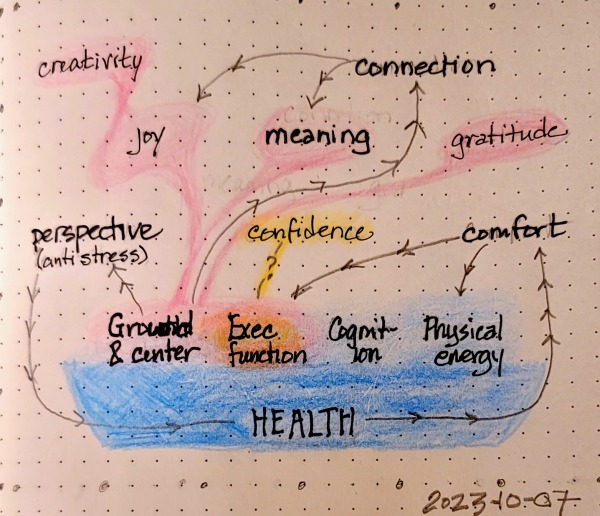 creativity
connection
joy
meaning
gratitude
perspective
(antistress)
confidence
comfort
?
Exec
function
Cognit-
ion
Physical
energy
& center
HEALTH
2023-10-07